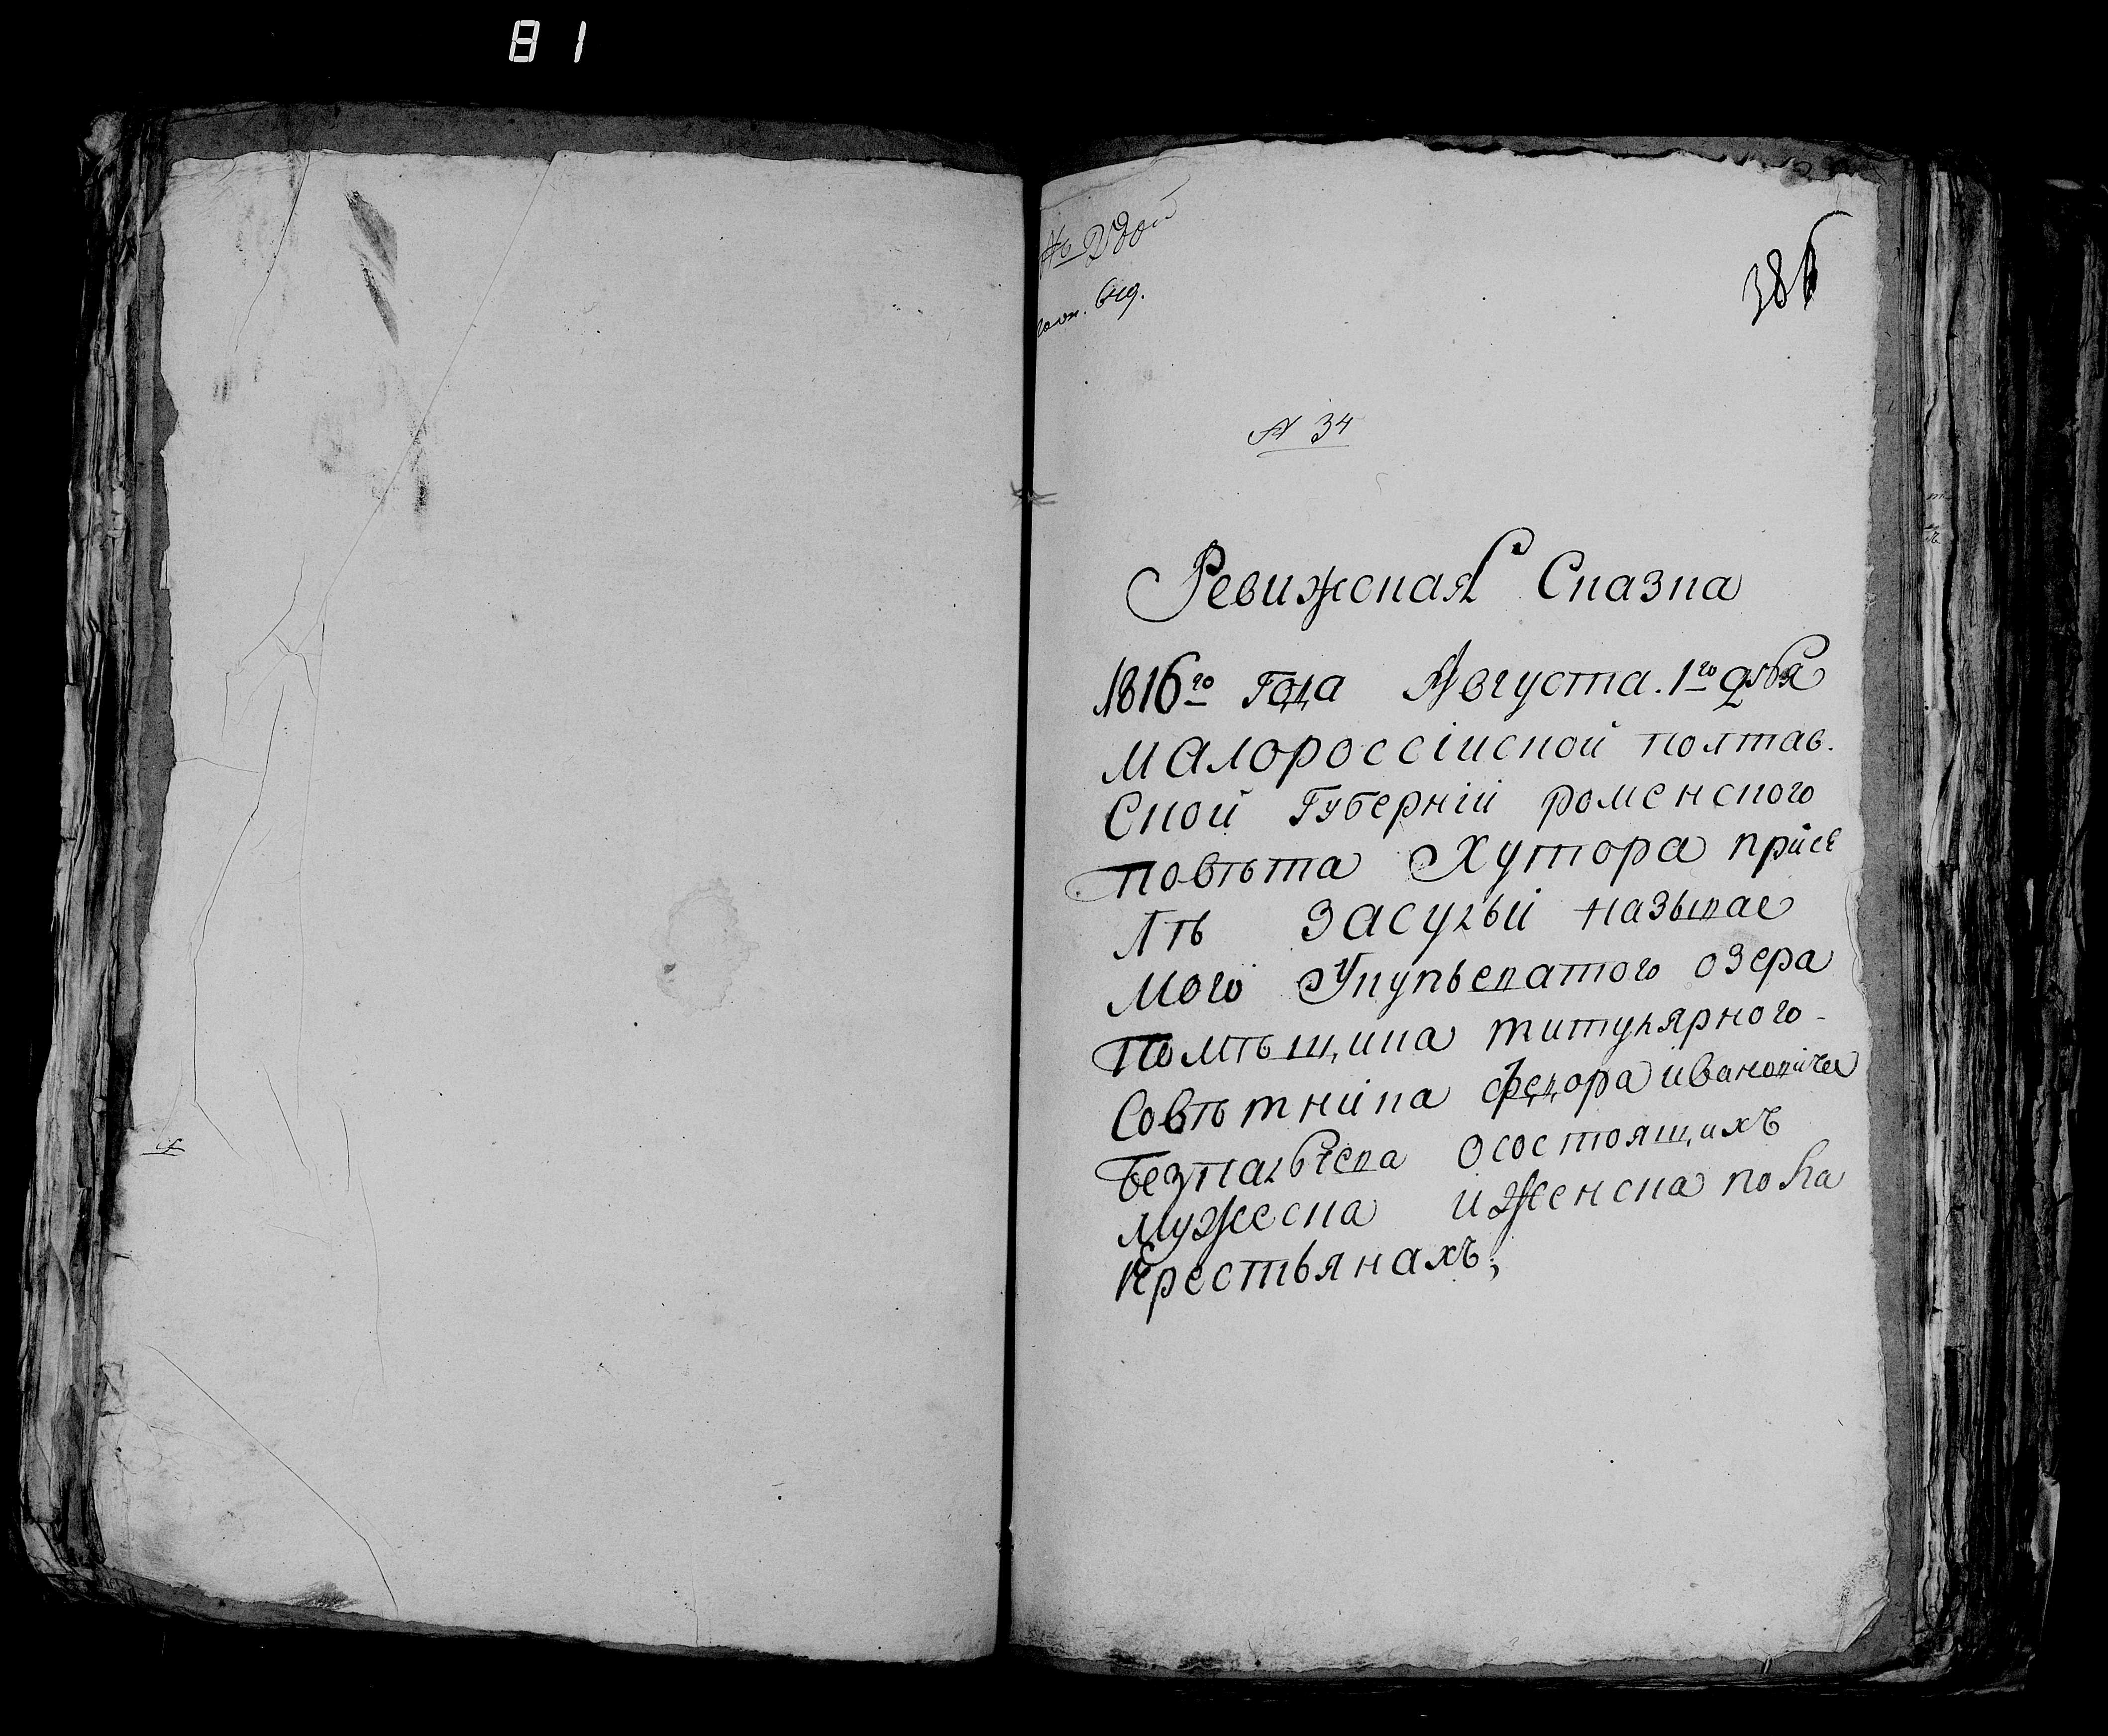 81
386
№ 34
Ревижская Сказка
1816го года Августа. 1го дня
малороссійской полтав.
Ской Губерній роменского
повѣта Хутора присе
лѣ Засулъй называе
мого Упупьеватого озера
помѣщика титулярного
Совѣтника федора ивановича
безпальчева осостоящихъ
мужеска иЖенска пола
Крестьянахъ;